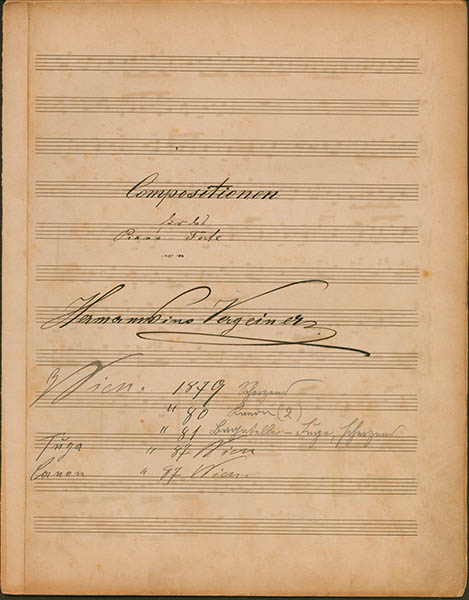 Compositionen
für das
Piano Forte
von
Hermann Pius Vergeiner
Wien. 1879 Scherzend
" 80 Kanon (2)
" 81 Bagatelle - Fuge, Scherzend
Fuga " 87 Wien
Canon " 87 Wien.